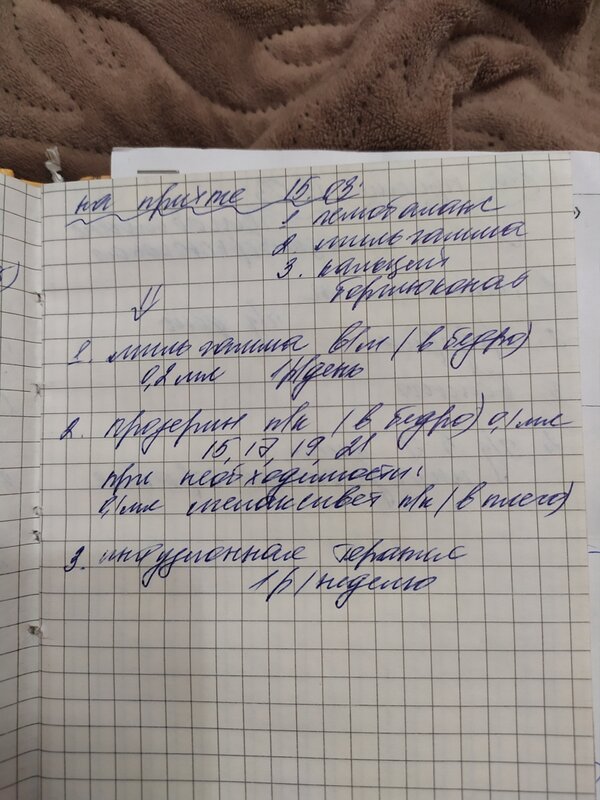 на прихте 15 03.
1 гемобаланс
2 мильгамма
3. кальций
борглюконат
1. мильгамма в/м (в бедро)
0,2 мл 1р/день
2. прозерин п/к (в бедро) 0,1 мл
15, 17, 19, 21
при необходимости:
0,1 мл мелоксивет п/к (в плечо)
3. инфузионная терапия
1р/неделю